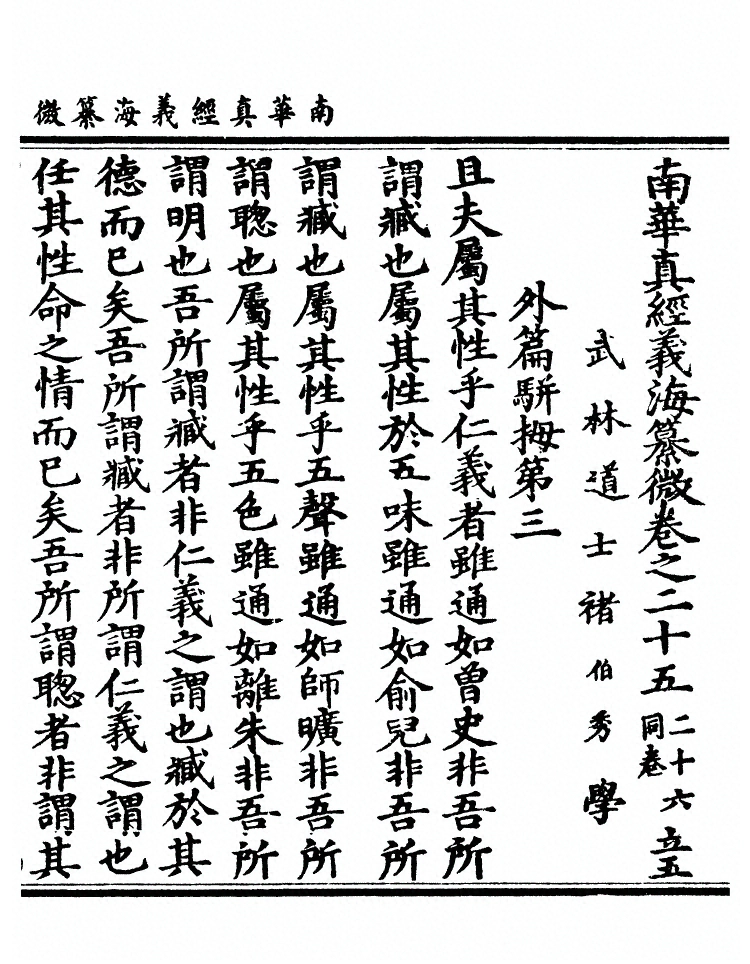 南華真經義海纂微
南華真經義海纂微卷之二十五二十六同卷 立五
武林道士褚伯秀學
外篇駢拇第三
且夫屬其性乎仁義者雖通如曾史非吾所
謂臧也屬其性於五味雖通如俞兒非吾所
謂臧也屬其性乎五聲雖通如師曠非吾所
謂聰也屬其性乎五色雖通如離朱非吾所
謂明也吾所謂臧者非仁義之謂也臧於其
德而已矣吾所謂臧者非所謂仁義之謂也
任其性命之情而已矣吾所謂聰者非謂其